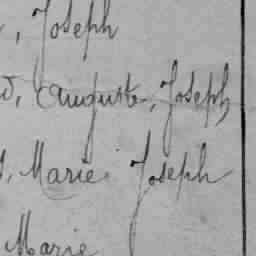 , Joseph
, Auguste, Joseph
, Marie Joseph
Marie